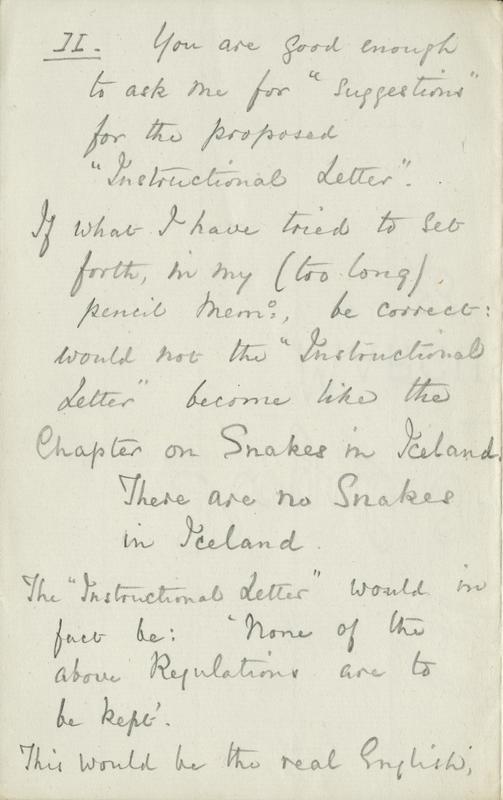 II. You are good enough
to ask me for "Suggestions"
for the proposed
"Instructional Letter".
If what I have tried to set
forth, in my (too long)
pencil Memo:, be correct:
would not the "Instructional
Letter" become like the
Chapter on Snakes in Iceland.
There are no Snakes
in Iceland.
The "Instructional Letter" would in
fact be: 'None of the
above Regulations are to
be kept'.
This would be the real English,